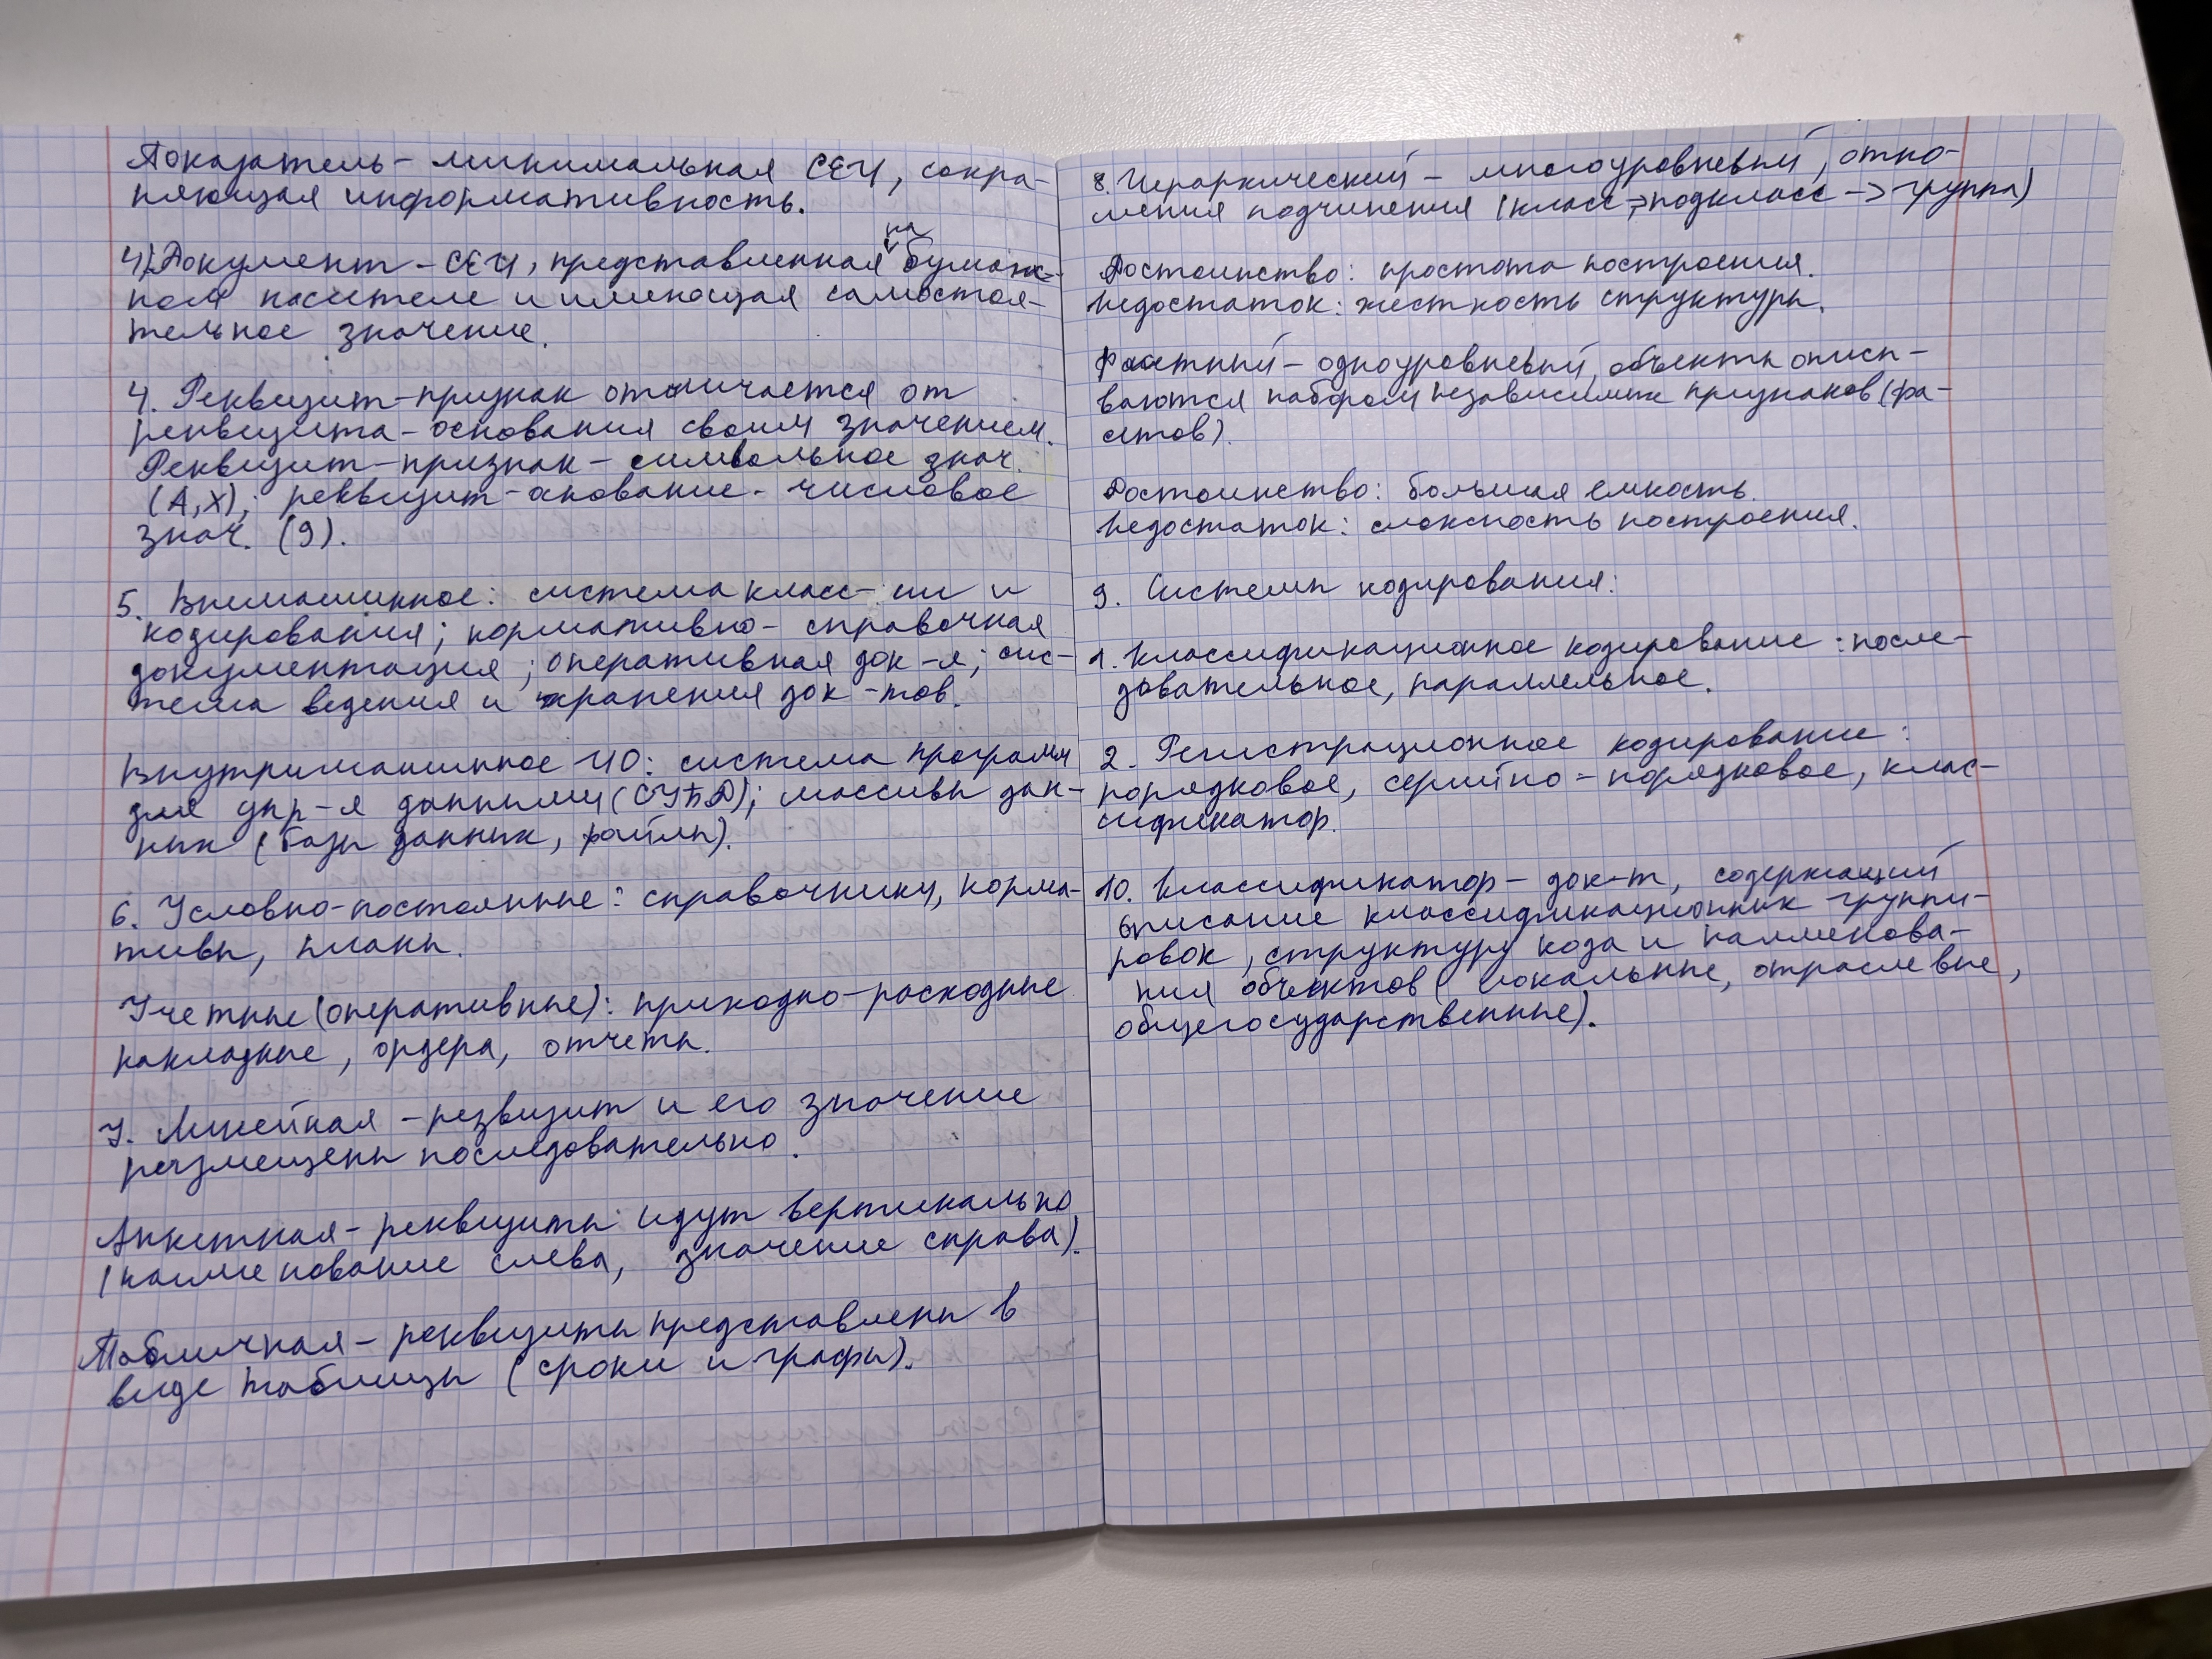 Показатель – минимальная СЕИ, сохра-
няющая информативность.
4) Документ – СЕИ, представленная на бумаж-
ном носителе и имеющая самостоя-
тельное значение.
4. Реквизит-признак отличается от
реквизита-основания своим значением.
Реквизит-признак – символьное знач.
(А,Х); реквизит-основание - числовое
знач. (9).
5. Внемашинное: система класс-ии и
кодирования; нормативно-справочная
документация; оперативная док-я; сис-
тема ведения и хранения док-тов.
Внутримашинное ИО: система программ
для упр-я данными (СУБД); массивы дан-
ных (базы данных, файлы).
6. Условно-постоянные: справочники, норма-
тивы, планы.
Учетные (оперативные): приходно-расходные
накладные, ордера, отчеты.
7. Линейная – резвизит и его значение
размещены последовательно.
Анкетная – реквизиты идут вертикально
(наименование слева, значение справа).
Табличная – реквизиты представлены в
виде таблицы (сроки и графы).
8. Иерархический – многоуровневый, отно-
шения подчинения (класс -> подкласс -> группа)
Достоинство: простота построения.
Недостаток: жесткость структуры.
Фасетный – одноуровневый, объекты описы-
ваются набором независимых признаков (фа-
сетов).
Достоинство: большая емкость.
Недостаток: сложность построения.
9. Системы кодирования:
1. Классификационное кодирование: после-
довательное, параллельное.
2. Регистрационное кодирование:
порядковое, серийно-порядковое, клас-
сификатор.
10. Классификатор – док-т, содержащий
описание классификационных группи-
ровок, структуру кода и наименова-
ния объектов (локальные, отраслевые,
общегосударственные).